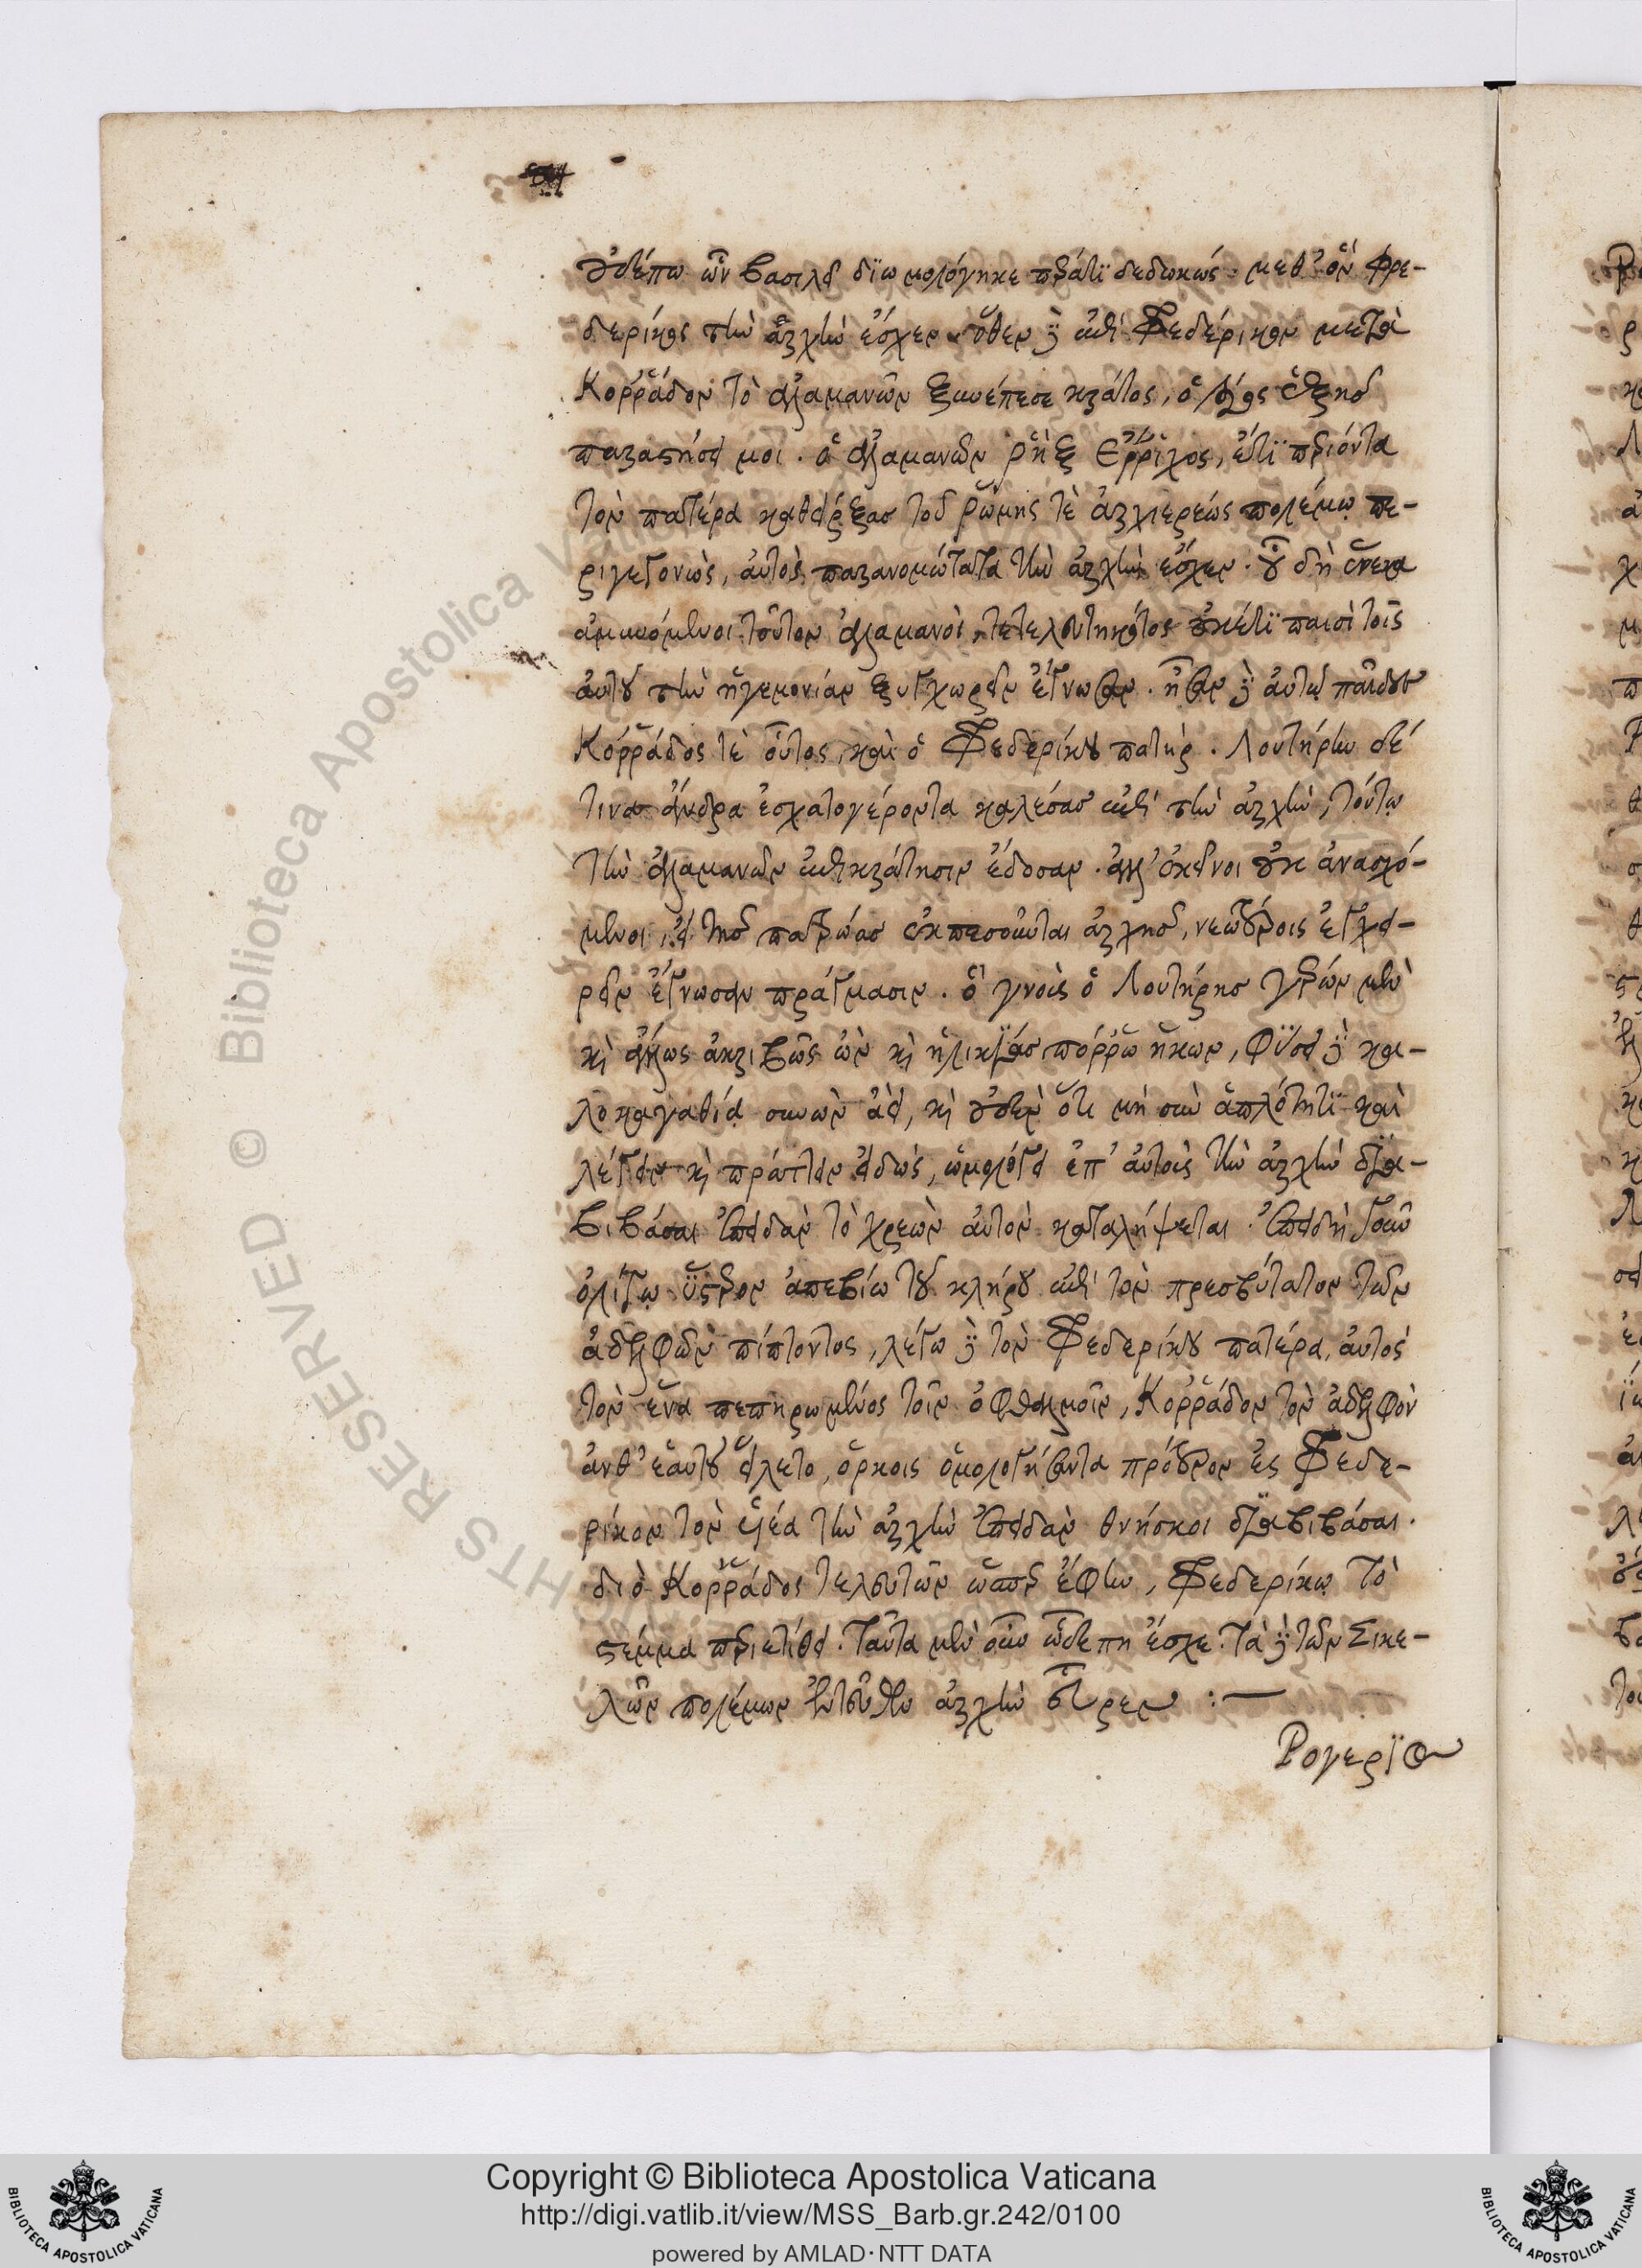 οὐδέπω ὢν βασιλεῖ διωμολόγηκε πράτϊ δεδωκώς. μεθ' ὃν Φρε-
δερίκος τὴν ἀρχὴν ἔσχεν. ὅθεν δὲ ἐπὶ Φεδέρικον μετὰ
Κορράδον τὸ ἀλαμανῶν ξυνέπεσε κράτος, ὁ λόγος ἑξῆς
παραστήσει μοι. ὁ ἀλαμανῶν ῥὴξ Ἐρρῖχος, ἔτϊ περιόντα
τὸν πατέρα καθείρξας τοῦ Ῥώμης τὲ ἀρχιερέως πολέμῳ πε-
ριγεγονὼς, αὐτὸς παρανομώτατα τὴν ἀρχὴν ἔσχεν. οὗ δὴ ἕνεκα
ἀμυνόμενοι τοῦτον ἀλαμανοὶ, τετελευτηκότος οὐκέτϊ παισὶ τοῖς
αὐτοῦ τὴν ἡγεμονίαν ξυγχωρεῖν ἔγνωσαν. ἦσαν δὲ αὐτῷ παῖδες
Κορράδος τὲ οὗτος, καὶ ὁ Φεδερίκου πατήρ. Λουτήρην δέ
τινα ἄνδρα ἐσχατογέροντα καλέσας ἐπὶ τὴν ἀρχὴν, τούτῳ
τὴν ἀλαμανῶν ἐπικράτησιν ἔδοσαν. ἀλλ' ἐκεῖνοι οὐκ ἀνασχό-
μενοι, εἰ τῆς πατρῴας ἐκπεσοῦνται ἀρχῆς, νεωτέροις ἐγχει-
ρεῖν ἔγνωσαν πράγμασιν. ὃ γνοὺς ὁ Λουτήρης γέρων μὲν
καὶ ἄλλως ἀκριβῶς ὢν καὶ ἡλικίας πόρρω ἥκων, φύσει δὲ κα-
λοκαγαθίᾳ συνὼν ἀεὶ, καὶ οὐδὲν ὅτι μὴ σὺν ἁπλότητϊ καὶ
λέγειν καὶ πράττειν εἰδὼς, ὡμολόγει ἐπ' αὐτοὺς τὴν ἀρχὴν δια-
βιβάσαι ἐπειδὰν τὸ χρεὼν αὐτὸν καταλήψεται. ἐπειδὴ γοῦν
ὀλίγῳ ὕστερον ἀπεβίω τοῦ κλήρου ἐπὶ τὸν πρεσβύτατον τῶν
ἀδελφῶν πίπτοντος, λέγω δὲ τὸν Φεδερίκου πατέρα, αὐτὸς
τὸν ἕνα πεπηρωμένος τοῖν ὀφθαλμοῖν, Κορράδον τὸν ἀδελφὸν
ἀνθ' ἑαυτοῦ εἵλετο, ὅρκοις ὁμολογήσαντα πρότερον ἐς Φεδε-
ρίκον τὸν υἱέα τὴν ἀρχὴν ἐπειδὰν θνήσκοι διαβιβάσαι.
διὸ Κορράδος τελευτῶν ὥσπερ ἔφην, Φεδερίκῳ τὸ
στέμμα περιετίθει. Ταῦτα μὲν οὖν ὧδέ πη ἔσχε. τὰ δὲ τῶν Σικε-
λῶν πολέμων ἐντεῦθεν ἀρχὴν εὗρεν :—
Ρογερϊος